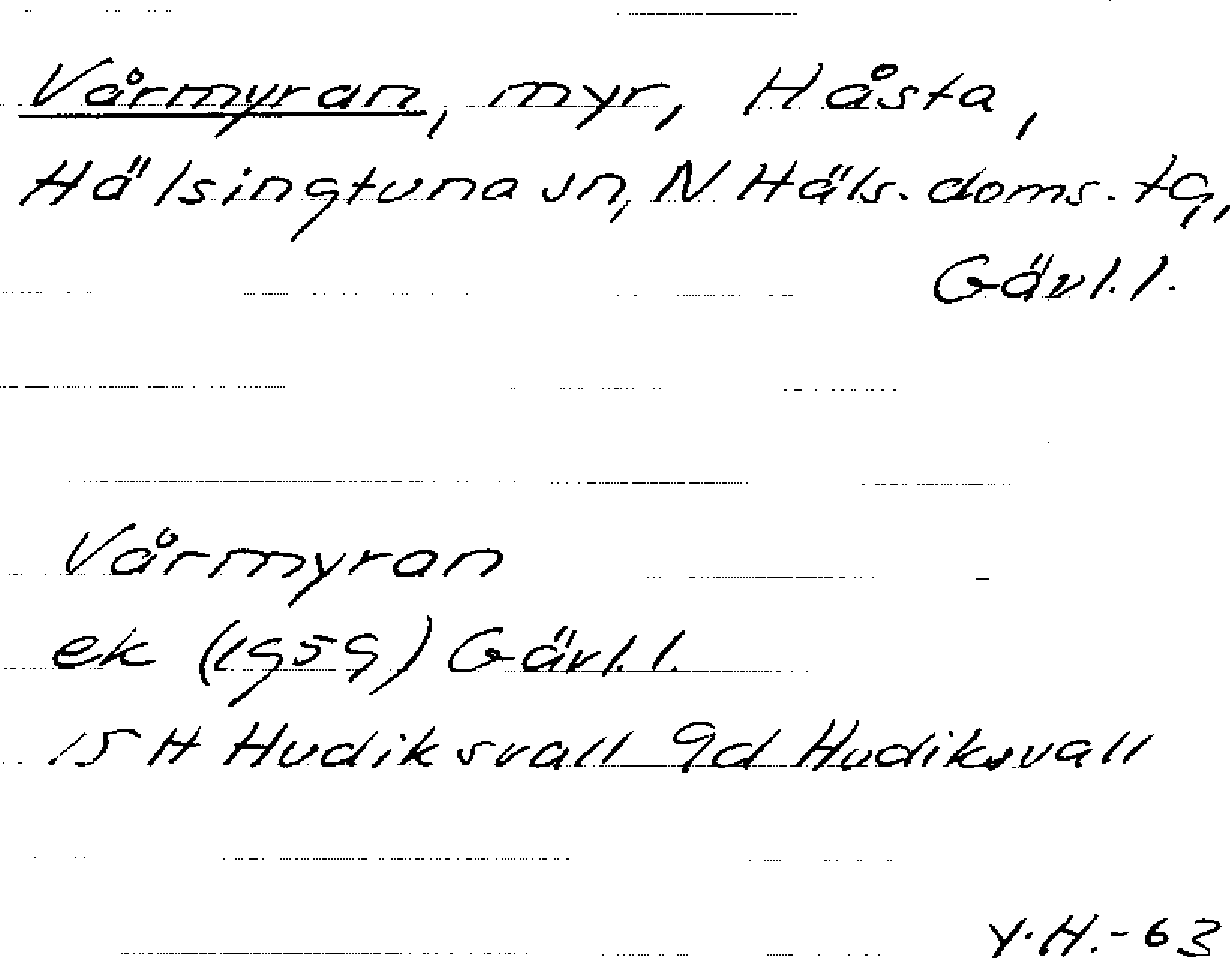 Vårmyran, myr, Håsta,
Hälsingtuna sn, N Häls. doms. tg,
Gävl. l.
Vårmyran
ek (1959) Gävl. l.
15 H Hudiksvall 9d Hudiksvall
Y.H.-63